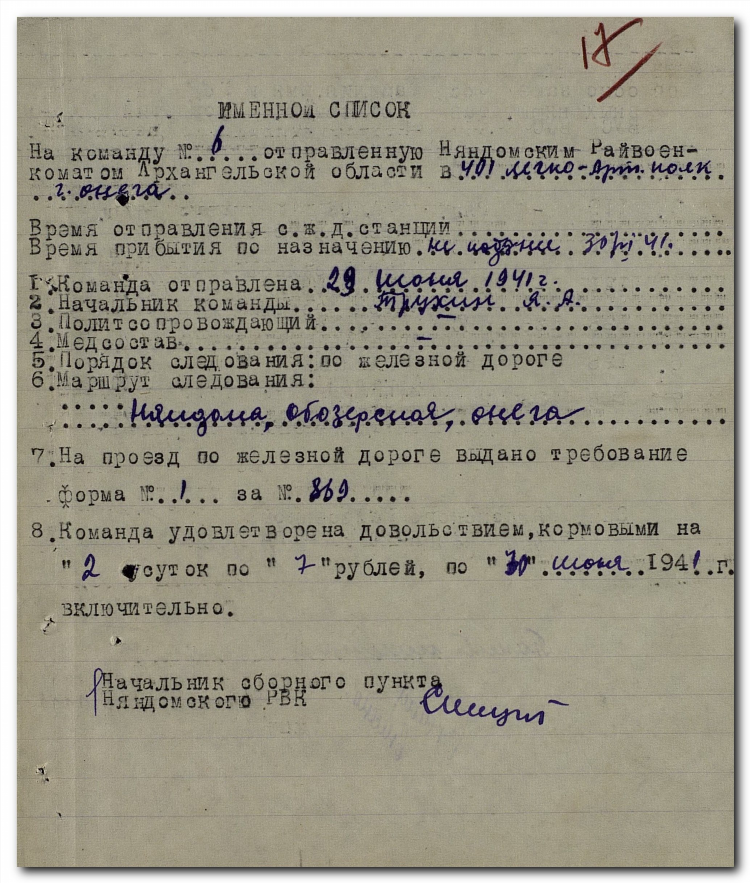 17
ИМЕННОЙ СПИСОК
На команду №.6....отправленную Няндомским Райвоен-
коматом Архангельской области в 401 легко-арт. полк
г. Онега..
Время отправления с.ж.д.станции..............................
Время прибытия по назначению. не позднее 30/VI 41.
1.Команда отправлена..29 июня 1941 г.
2.Начальник команды.....Трухин Я. А.
3.Политсопровождающий....–....
4.Медсостав..........–..........
5.Порядок следования:по железной дороге
6.Маршрут следования:
Няндома, Обозерская, Онега
7.На проезд по железной дороге выдано требование
форма №.1... за №.869.....
8.Команда удовлетворена довольствием,кормовыми на
"2 "суток по " 7 "рублей, по "30"..июня..1941 г.
включительно.
Начальник сборного пункта
Няндомского РВК